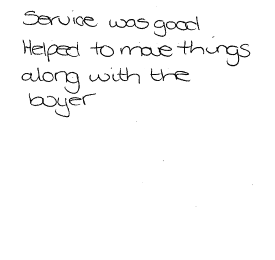 Service was good
Helped to move things
along with the
buyer